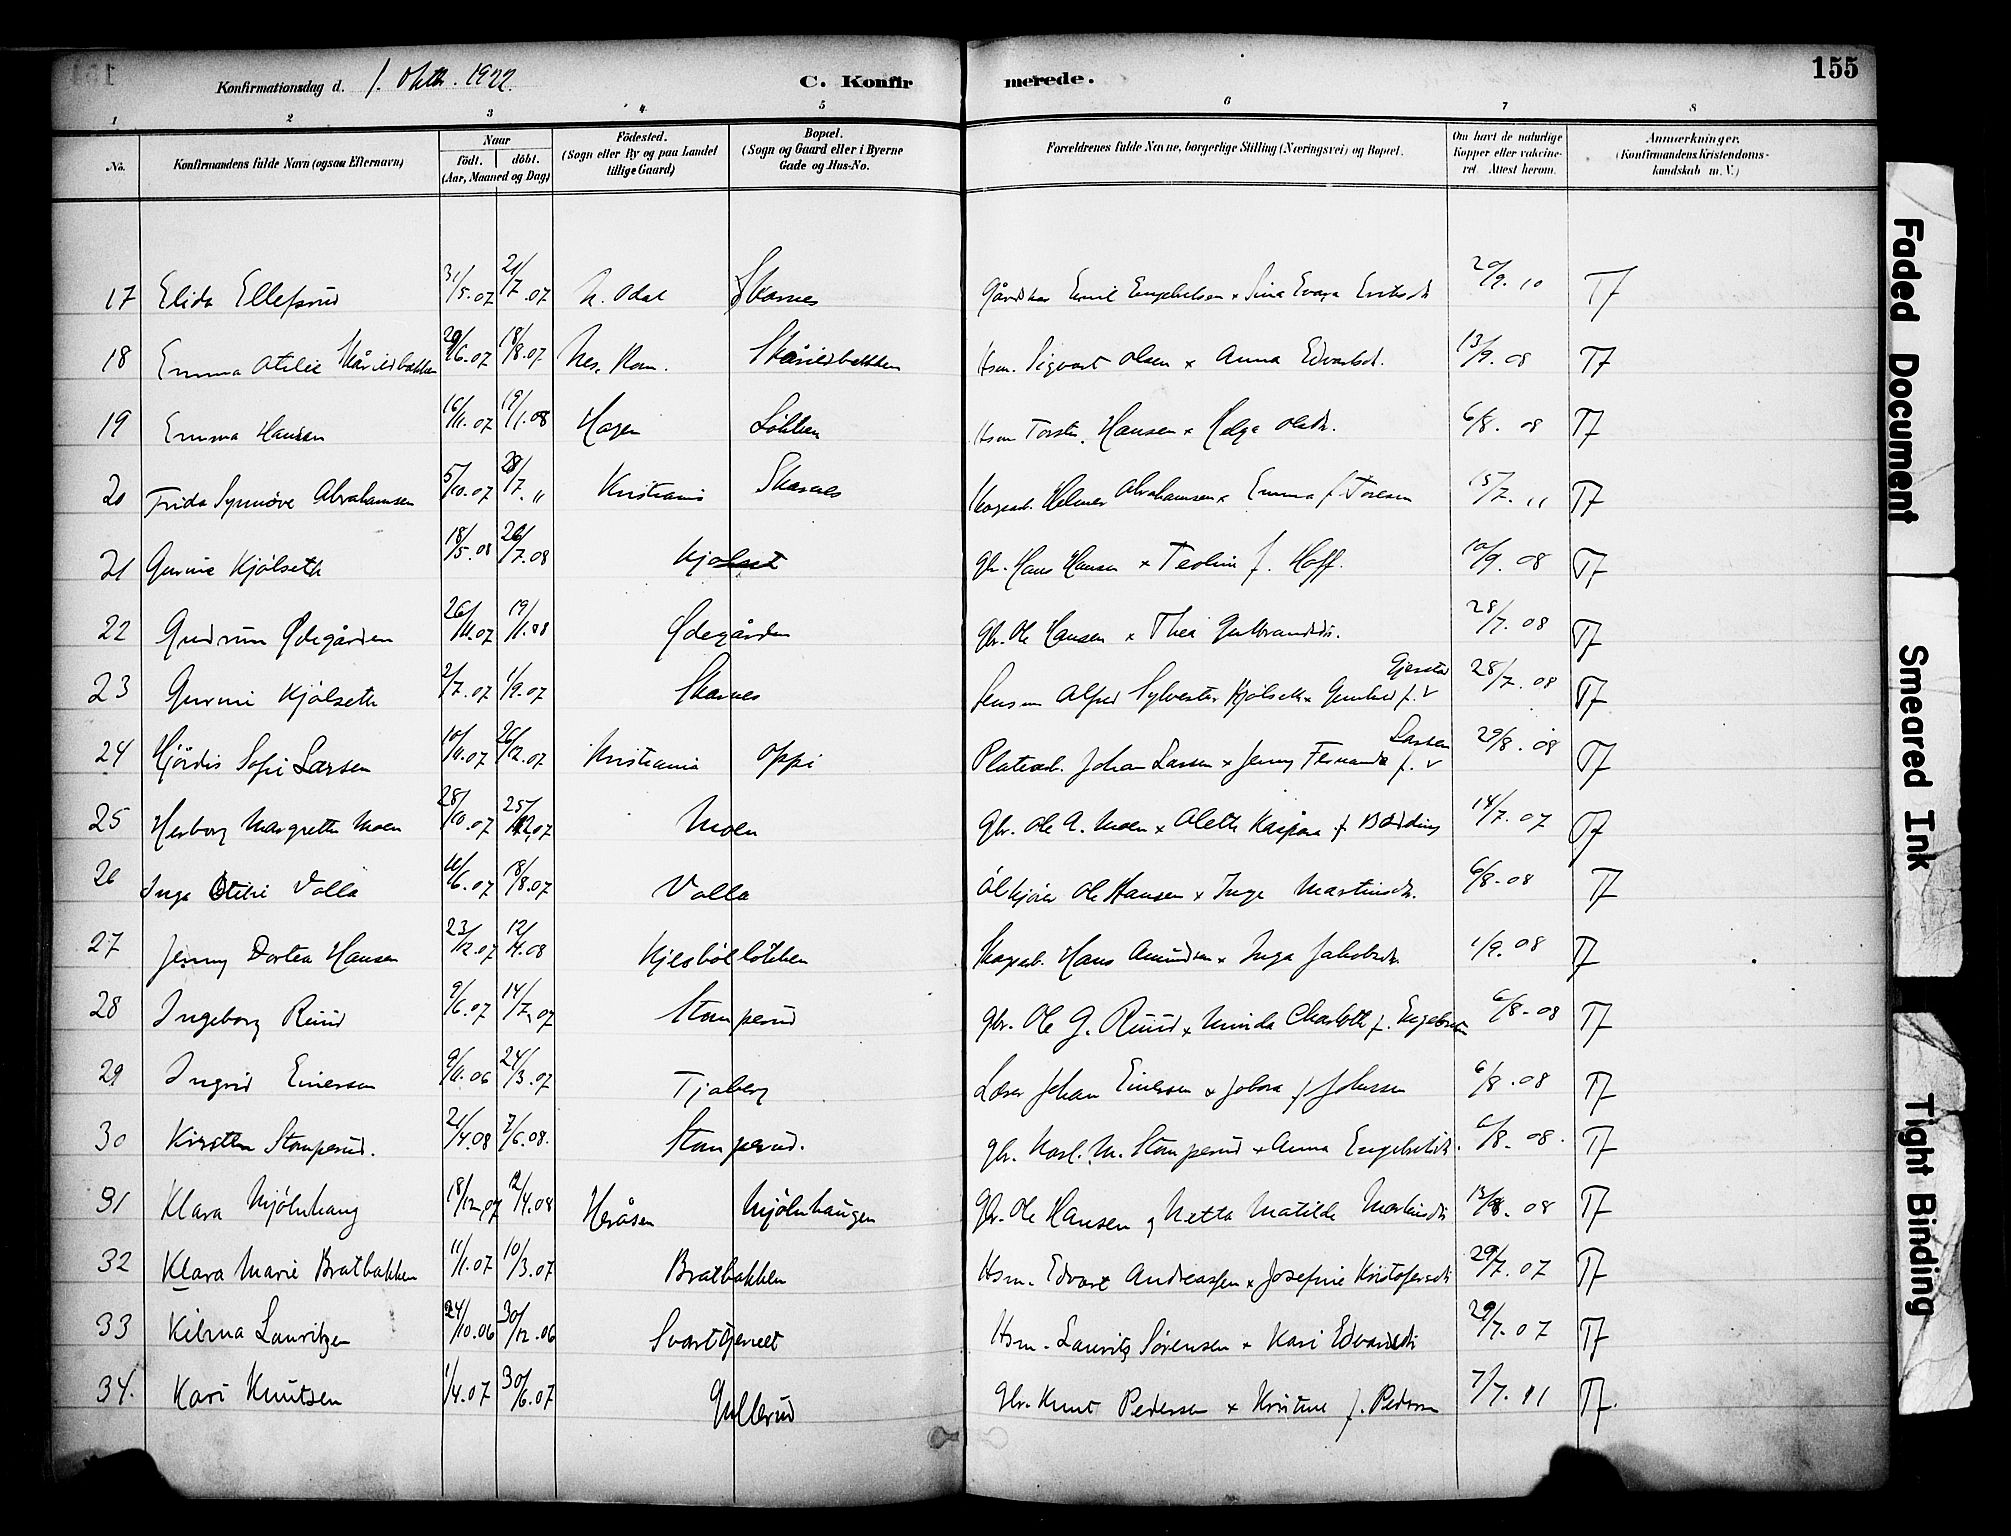 155
Konfirmationsdag d. 1. Oktbr. 1922.
C. Konfirmerede.
1 2 3 4 5 6 7 8
No.
Konfirmandens fulde Navn (ogsaa Efternavn)
Naar
födt. döbt.
(Aar, Maaned og Dag)
Födested.
(Sogn eller By og paa Landet
tillige Gaard)
Bopæl.
(Sogn og Gaard eller i Byerne
Gade og Hus-No.
Forældrenes fulde Navne, borgerlige Stilling (Næringsvei) og Bopæl.
Om havt de naturlige
Kopper eller vakcine-
ret Attest herom.
Anmærkninger.
(Konfirmandens Kristendoms-
kundskab m. V.)
17 Elida Ellefsrud 31/5.07 21/7.07 N. Odal Skarnes Emil Engebretsen x Sina Eriksdt. 20/9.10 Tf
18 Emma Otilie Skårildbakken 29/6.07 18/8.07 Nes, Rom. Skårildbakken Hsm. Sigvart Olsen x Anna Edvartsdt. 13/9.08 Tf
19 Emma Hansen 16/11.07 19/1.08 Hagen Løkken Hsm Torsten Hansen x Helga Olsdt. 6/8.08 Tf
20 Frida Synnøve Abrahamsen 5/10.07 28/7. " Kristiania Skarnes Helmer Abrahamsen x Emma f. Toresen 15/7.11 Tf
21 Gunnie Kjølseth 18/5.08 26/7.08 Kjølset Gbr. Hans Hansen x Teoline f. Hoff. 10/9.08 Tf
22 Gudrun Ødegården 26/11.07 19/1.08 Ødegården Gbr. Ole Hansen x Thea Gulbrandsdt. 28/7.08 Tf
23 Gunni Kjølseth 2/7.07 1/9.07 Skarnes Alfred Sylvester Kjølseth x Gunhild f. Gjersted 28/7.08 Tf
24 Hjördis Sofie Larsen 10/11.07 26/12.07 Kristiania Oppi Johan Larsen x Jenny Fernanda f. Larsen 29/8.08 Tf
25 Herborg Margrethe Moen 28/10.07 25/12.07 Moen Gbr. Ole A. Moen x Oleth Kaspara f. 14/7.07 Tf
26 Inga Otilie Volla 16/6.07 18/8.07 Volla Ølkjører Ole Hansen x Inga Martinsdt. 6/8.08 Tf
27 Jenny Dortea Hansen 23/12.07 12/4.08 Kjesbølløkken Skogsarb. Hans Amundsen x Inga Jakobsdt. 1/9.08 Tf
28 Ingeborg Ruud 9/6.07 14/7.07 Stomperud Gbr. Ole G. Ruud x Minda Charlotte f. Engebretsen 6/8.08 Tf
29 Ingrid Einersen 9/11.06 24/3.07 Tjaberg Johan Einersen x f. Johnsen 6/8.08 Tf
30 Kirsten Stomperud. 21/4.08 7/6.08. Stomperud. Gbr. M. Stomperud x Anna Engebretsdt. 6/8.08. Tf
31 Klara Mjølnhaug 18/12.07 12/4.08 Heråsen Mjølnhaugen Gbr. Ole Hansen og Netta Matilde Martinsdt 13/8.08 Tf
32 Klara Marie Bratbakken 11/1.07 10/3.07 Bratbakken Hsm. Edvart Andreassen x Josefine Kristofersdt 29/7.07 Tf
33 Kilma Lauritzen 24/10.06 30/12.06 Svarttjernet Hsm. Laurits Sørensen x Kari Edvardsdt 29/7.07 Tf
34. Kari Knutsen 1/4.07 30/6.07 Gullerud Gbr. Knut Pedersen x Kristine f. Pedersen 7/7.11 Tf.
Faded Document
Smeared Ink
Tight Binding